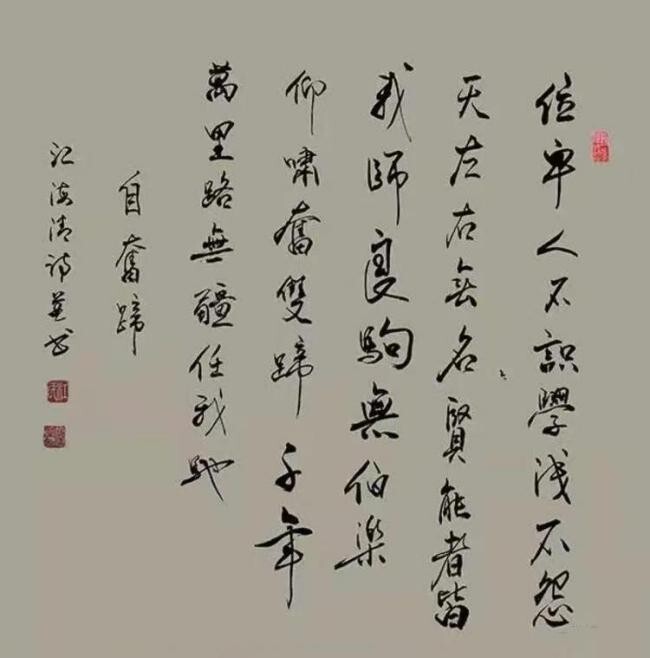 位卑人不識學淺不怨
天左右無名賢能者皆
我師良駒無伯樂
仰嘯奮雙蹄千年
萬里路無疆任我馳
自奮蹄
江海清詩並書